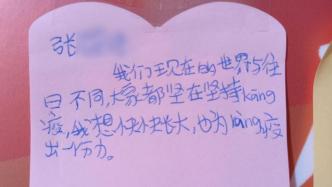 张
我们现在的世界与往
日不同,大家都坚在坚持kāng
疫,我想快快长大,也为kàng疫
出一份力。